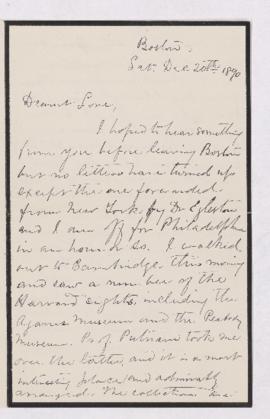 Boston,
Sat. Dec. 20th 1890
Dearest Love,
I hoped to hear something
from you before leaving Boston
but no letters have turned up
except the one forwarded
from New York by Dr Egleston
and I am off for Philadelphia
in an hour or so. I walked
out to Cambridge this morning
and saw a number of the
Harvard sights, including the
Agassiz museum and the Peabody
museum. Prof Putnam took me
over the latter, and it is a most
interesting place and admirably
arranged. The collections